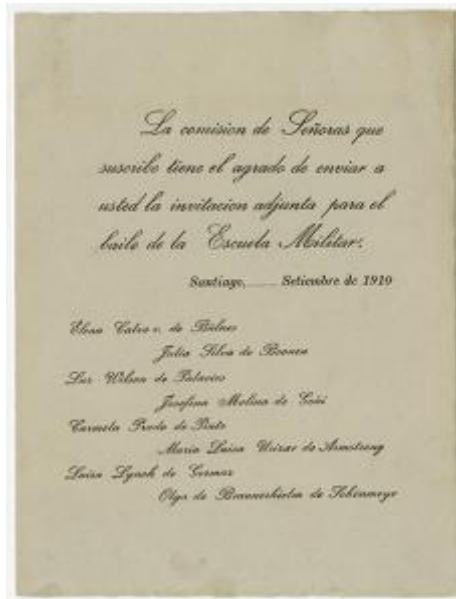 La comision de Señoras que
suscribe tiene el agrado de enviar a
usted la invitacion adjunta para el
baile de la Escuela Militar.
Santiago,........ Setiembre de 1910
Elena Calvo v. de Búlnes
Julia Silva de Boonen
Luz Wilson de Palacios
Josefina Molina de Goñi
Carmela Prado de Pinto
Maria Luisa Urizar de Armstrong
Luisa Lynch de Gormaz
Olga de de